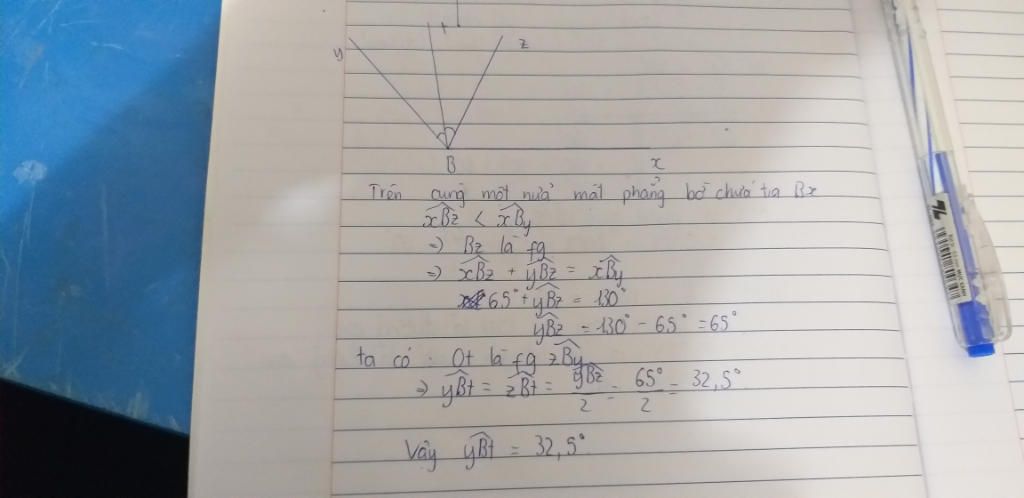 y
t
z
B
x
Trên cùng một nửa mặt phẳng bờ chứa tia Bx
xB̂z < xB̂y
=> Bz là fg
=> xB̂z + yB̂z = xB̂y
65° + yB̂z = 130°
yB̂z = 130° - 65° = 65°
ta có : Ot là fg zB̂y
=> yB̂t = zB̂t = yB̂z/2 = 65°/2 = 32,5°
Vậy yB̂t = 32,5°